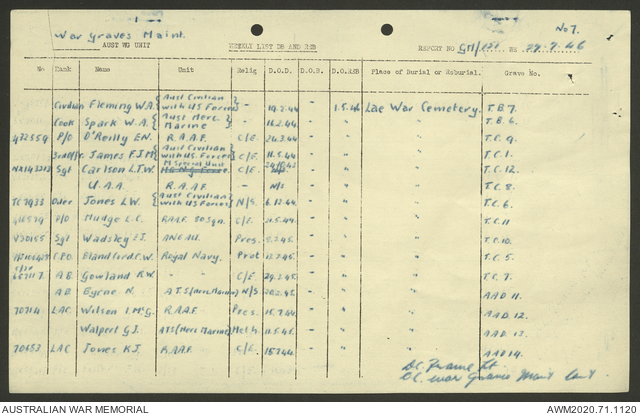 War Graves Maint. No 7.
AUST WG UNIT WEEKLY LIST DB AND REB REPORT NO GM/ NE 29.7.46
No. Rank Name Unit Relig D.O.D. D.O.B. D.O.REB Place of Burial or Reburial. Grave No.
Civilian Fleming W.A. {Aust Civilian with U.S Forces} - 19.2.44 - 1.5.46 Lae War Cemetery. T.B.7.
Cook Spark W.A. {Aust Merc. Marine - 16.2.44 - " T.B.6.
432559 P/O O'Reilly E.N. R.A.A.F. C/E. 26.3.44 - " " T.C.9.
James F.J.M. {Aust Civilian with U.S. Forces} C/E. 11.5.44 - " " T.C.1.
NX143213 Sgt Carlson L.T.W. M Special Unit C/E. - " " T.C.12.
U.A.A. R.A.A.F. - N/S - " " T.C.8.
Oiler Jones L.W. {Aust Civilian with U.S Forces} N/S. 6.12.44 - " " T.C.6.
P/O Mudge L.C. R.A.A.F. 30 Sqn. C/E. - " " T.C.11.
Sgt Wadsley F.J. Pres. - " " T.C.10.
C.P.O. Blandford C.W. Royal Navy. Prot - " " T.C.5.
A.B. Gowland R.W. " " C/E. 29.2.45 - " " T.C.7.
A.B. Byrne N. A.T.S (Merc Marine) N/S 20.2.45 - " " AAD 11.
70714 LAC Wilson I. McG. R.A.A.F. Pres. 15.7.44 - " " AAD 12.
Walpert G.J. ATS (Merc Marine) Meth. 11.5.45 - " " AAD 13.
70453 LAC Jones K.J. R.A.A.F. C/E. 15.7.44 - " " AAD 14.
Lt.
OC. War Graves Maint Unit
AUSTRALIAN WAR MEMORIAL AWM2020.71.1120